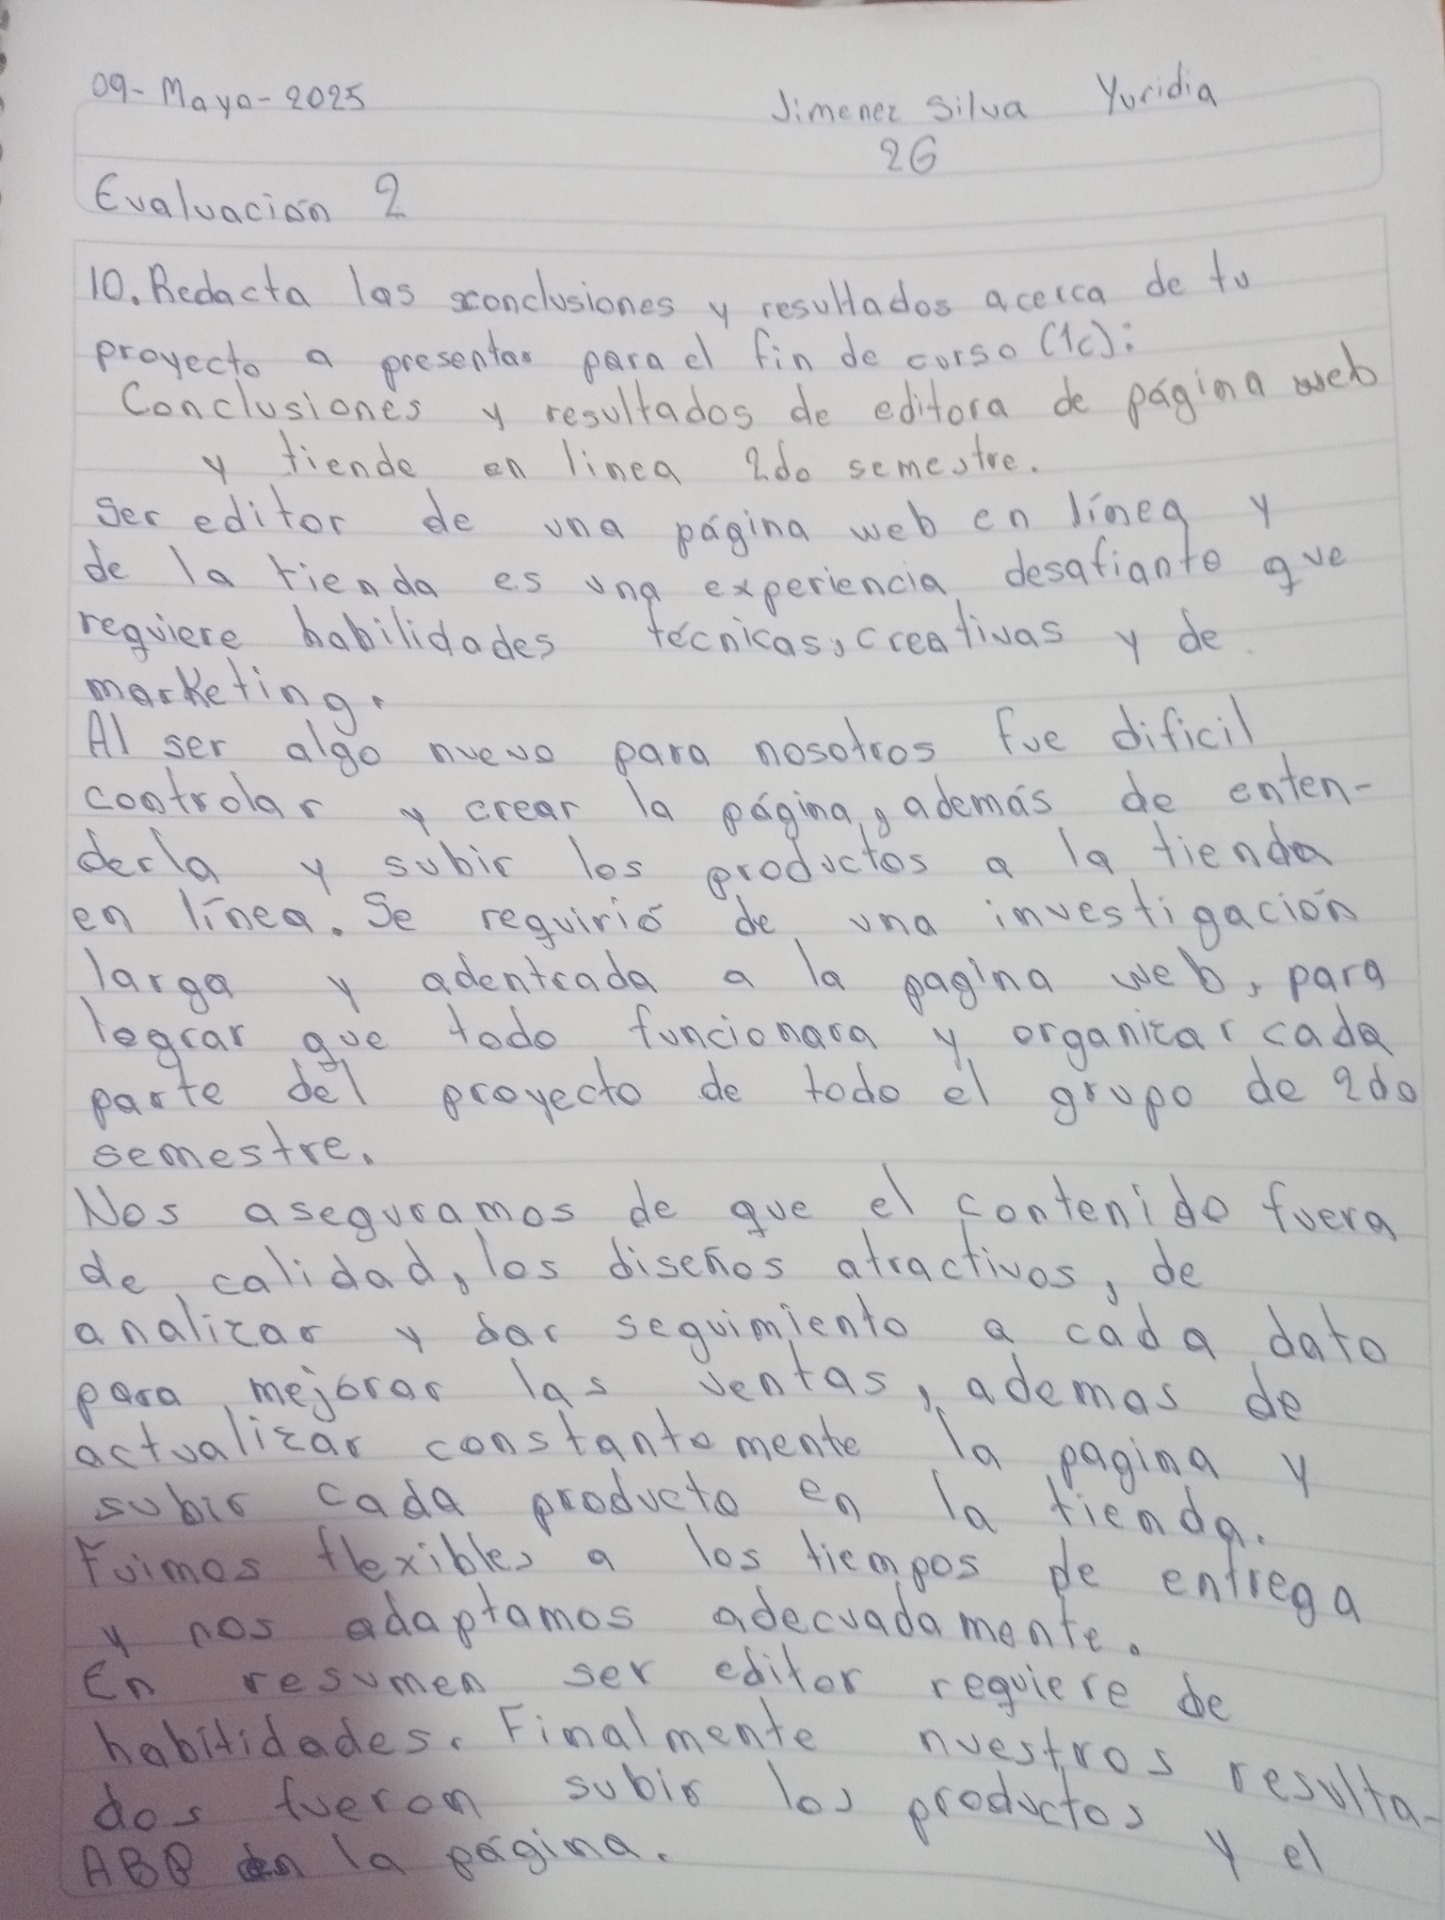 09-Mayo-2025
Jimenez Silva Yuridia
2G
Evaluación 2
10. Redacta las conclusiones y resultados acerca de tu
proyecto a presentar para el fin de curso (1c):
Conclusiones y resultados de editora de página web
y tiende en linea 2do semestre.
Ser editor de una página web en línea y
de la tienda es una experiencia desafiante que
requiere habilidades técnicas, creativas y de
marketing.
Al ser algo nuevo para nosotros fue dificil
controlar y crear la página, además de enten-
derla y subir los productos a la tienda
en línea. Se requirió de una investigación
larga y adentrada a la pagina web, para
lograr que todo funcionara y organizar cada
parte del proyecto de todo el grupo de 2do
semestre.
Nos aseguramos de que el contenido fuera
de calidad, los diseños atractivos, de
analizar y dar seguimiento a cada dato
para mejorar las ventas, ademas de
actualizar constantemente la pagina y
subir cada producto en la tienda.
Fuimos flexibles a los tiempos de entrega
y nos adaptamos adecuadamente.
En resumen ser editor requiere de
habilidades. Finalmente nuestros resulta-
dos fueron subir los productos y el
ABP en la página.